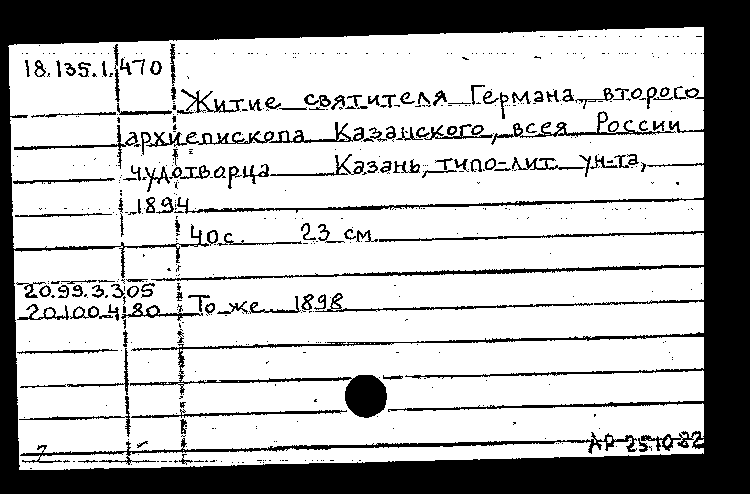 18.135.1.470
Житие святителя Германа, второго
архиепископа Казанского, всея России
чудотворца Казань, типо-лит. ун-та,
1894.
40 с. 23 см.
20.99.3.305
20.100.4.80 То же 1898
АР 25.10.82